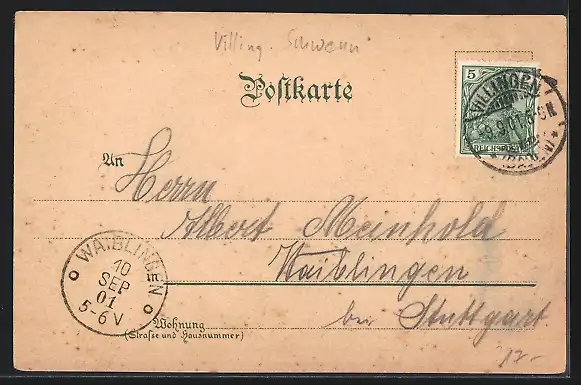 Villing. Schwenn
Postkarte
5
REICHSPOST
VILLINGEN
9.9.01. 6-8N.
* (BADEN) *
An
Herrn
Albert Meinhold
in
Waiblingen
bei Stuttgart.
WAIBLINGEN
10
SEP
01
5-6 V
Wohnung
(Strasse und Hausnummer)
12.-